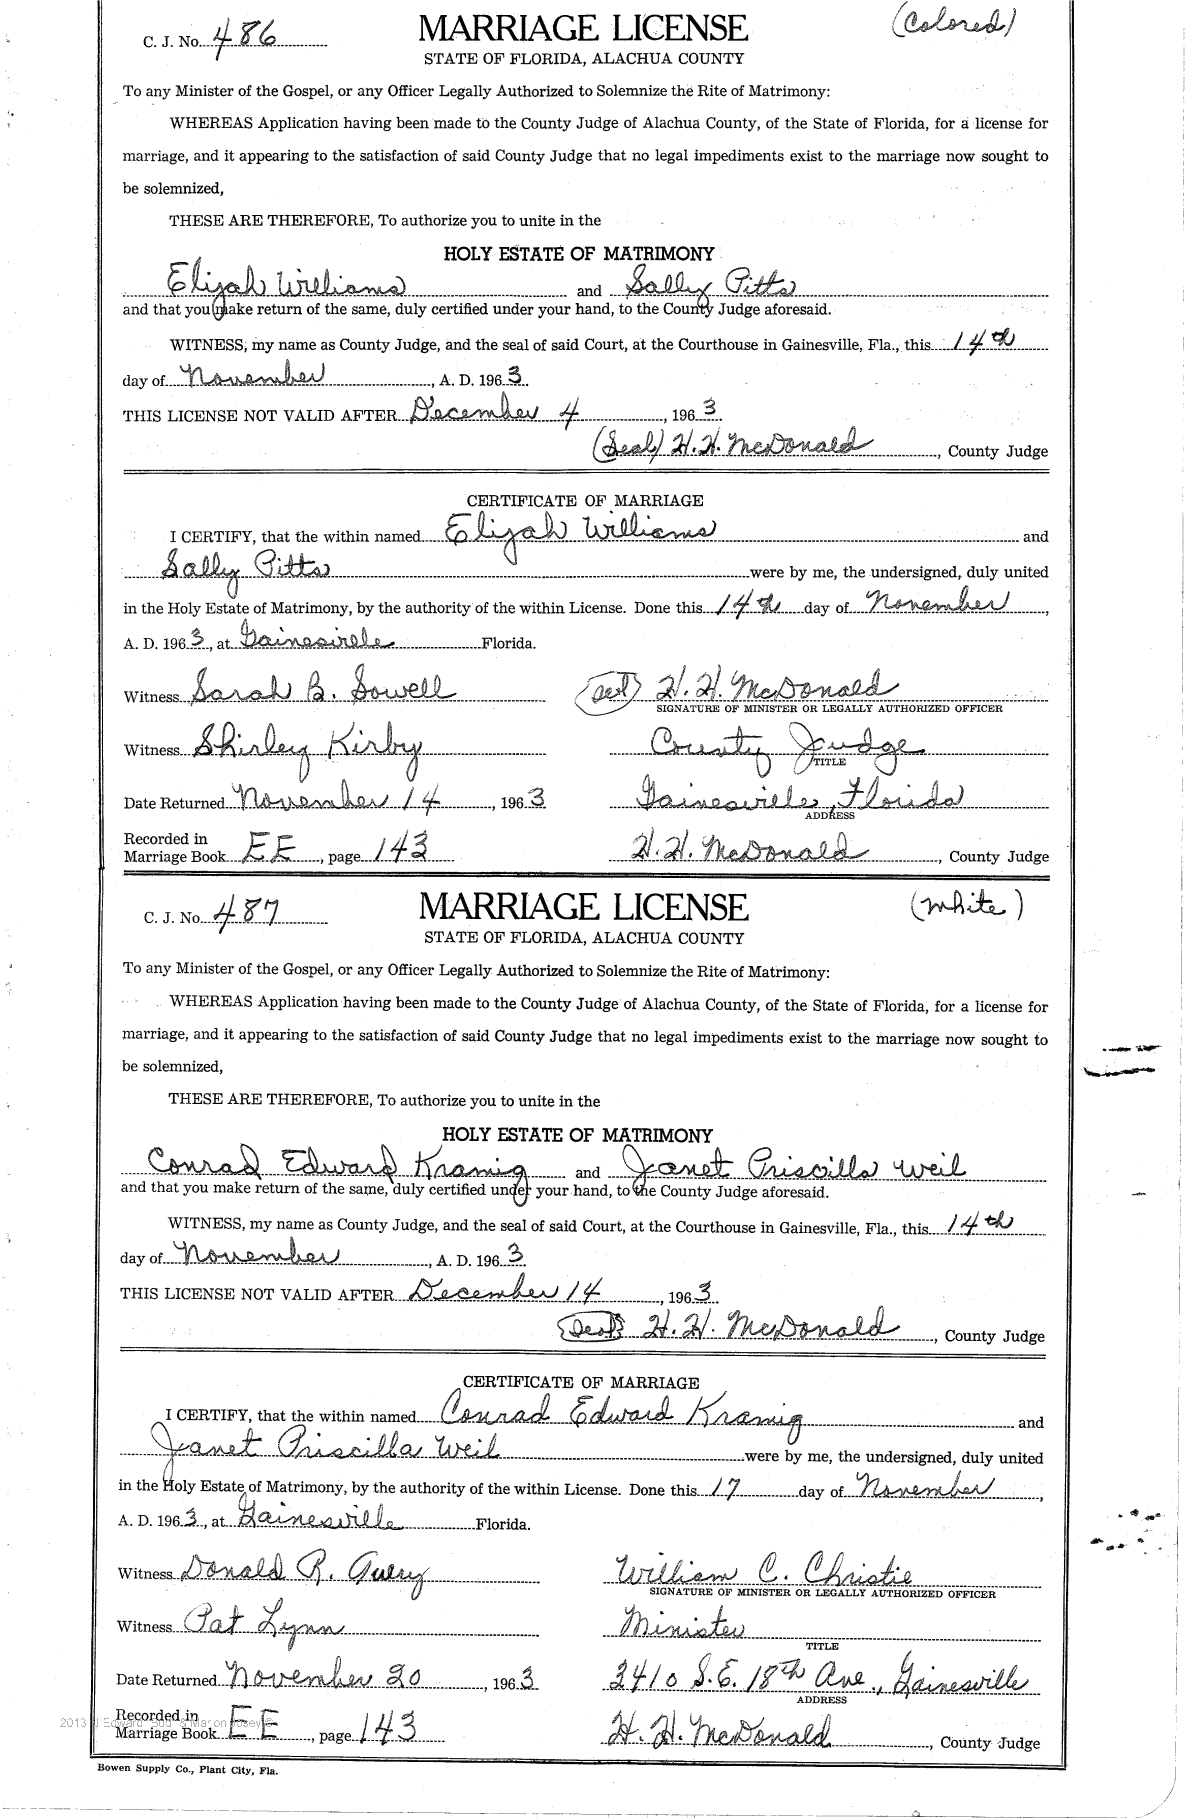 C. J. No. 486 MARRIAGE LICENSE (Colored)
STATE OF FLORIDA, ALACHUA COUNTY
To any Minister of the Gospel, or any Officer Legally Authorized to Solemnize the Rite of Matrimony:
WHEREAS Application having been made to the County Judge of Alachua County, of the State of Florida, for a license for
marriage, and it appearing to the satisfaction of said County Judge that no legal impediments exist to the marriage now sought to
be solemnized,
THESE ARE THEREFORE, To authorize you to unite in the
HOLY ESTATE OF MATRIMONY
Elijah Williams and Sally Pitts
and that you make return of the same, duly certified under your hand, to the County Judge aforesaid.
WITNESS, my name as County Judge, and the seal of said Court, at the Courthouse in Gainesville, Fla., this 14th
day of November, A. D. 1963.
THIS LICENSE NOT VALID AFTER December 4, 1963
(Seal) H. H. McDonald, County Judge
CERTIFICATE OF MARRIAGE
I CERTIFY, that the within named Elijah Williams and
Sally Pitts were by me, the undersigned, duly united
in the Holy Estate of Matrimony, by the authority of the within License. Done this 14th day of November,
A. D. 1963, at Gainesville Florida.
Witness Sarah B. Sowell (Seal) H. H. McDonald
SIGNATURE OF MINISTER OR LEGALLY AUTHORIZED OFFICER
Witness Shirley Kirby County Judge
TITLE
Date Returned November 14, 1963 Gainesville, Florida
ADDRESS
Recorded in
Marriage Book EE, page 143 H. H. McDonald, County Judge
C. J. No. 487 MARRIAGE LICENSE (White)
STATE OF FLORIDA, ALACHUA COUNTY
To any Minister of the Gospel, or any Officer Legally Authorized to Solemnize the Rite of Matrimony:
WHEREAS Application having been made to the County Judge of Alachua County, of the State of Florida, for a license for
marriage, and it appearing to the satisfaction of said County Judge that no legal impediments exist to the marriage now sought to
be solemnized,
THESE ARE THEREFORE, To authorize you to unite in the
HOLY ESTATE OF MATRIMONY
Conrad Edward Kramig and Janet Priscilla Weil
and that you make return of the same, duly certified under your hand, to the County Judge aforesaid.
WITNESS, my name as County Judge, and the seal of said Court, at the Courthouse in Gainesville, Fla., this 14th
day of November, A. D. 1963
THIS LICENSE NOT VALID AFTER December 14, 1963
(Seal) H. H. McDonald, County Judge
CERTIFICATE OF MARRIAGE
I CERTIFY, that the within named Conrad Edward Kramig and
Janet Priscilla Weil were by me, the undersigned, duly united
in the Holy Estate of Matrimony, by the authority of the within License. Done this 17 day of November,
A. D. 1963, at Gainesville Florida.
Witness Donald R. Avery William C. Christie
SIGNATURE OF MINISTER OR LEGALLY AUTHORIZED OFFICER
Witness Pat Lynn Minister
TITLE
Date Returned November 20, 1963 2410 S.E. 18th Ave., Gainesville
ADDRESS
Recorded in
Marriage Book EE, page 143 H. H. McDonald, County Judge
Bowen Supply Co., Plant City, Fla.